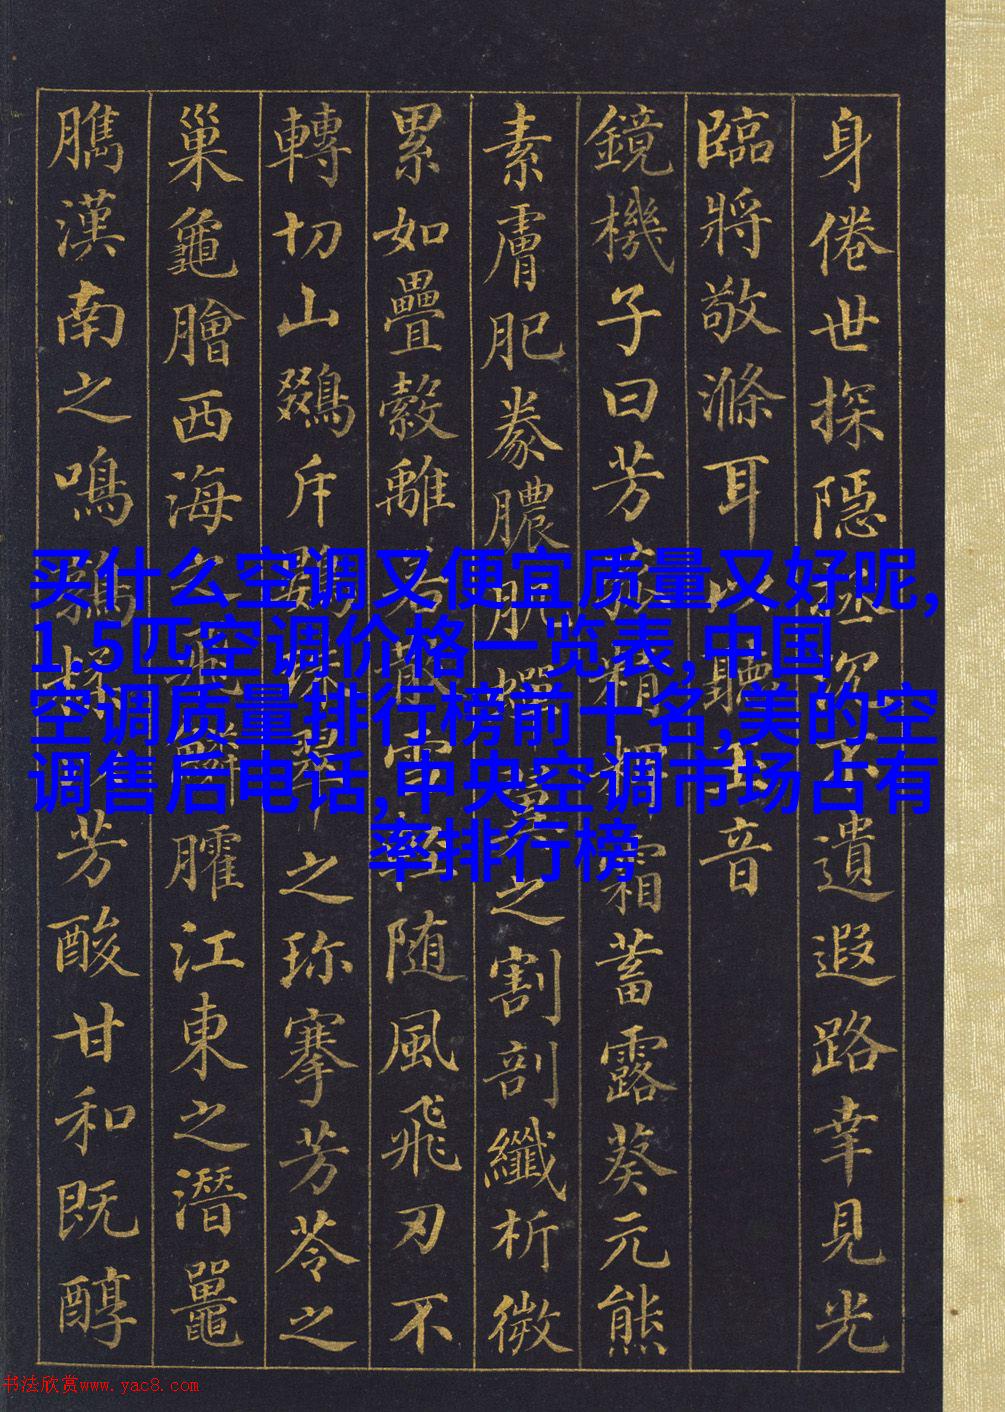 身倦世探隱拯沉不遺遐路幸見光
臨將敬滌耳以聽玉音
鏡機子曰芳菰精粺霜蓄露葵元熊
素膚肥豢膿肌蟬翼之割剖纖析微
累如疊縠離若散雪輕随風飛刃不
轉切山鵽斥鷃珠翠之珍搴芳苓之
巢龜膾西海之飛鱗臛江東之潛鼉
臇漢南之鳴鶉糅以芳酸甘和既醇
买什么空调又便宜质量又好呢,
1.5匹空调价格一览表,中国
空调质量排行榜前十名,美的空
调售后电话,中央空调市场占有
率排行榜
书法欣赏www.yac8.com